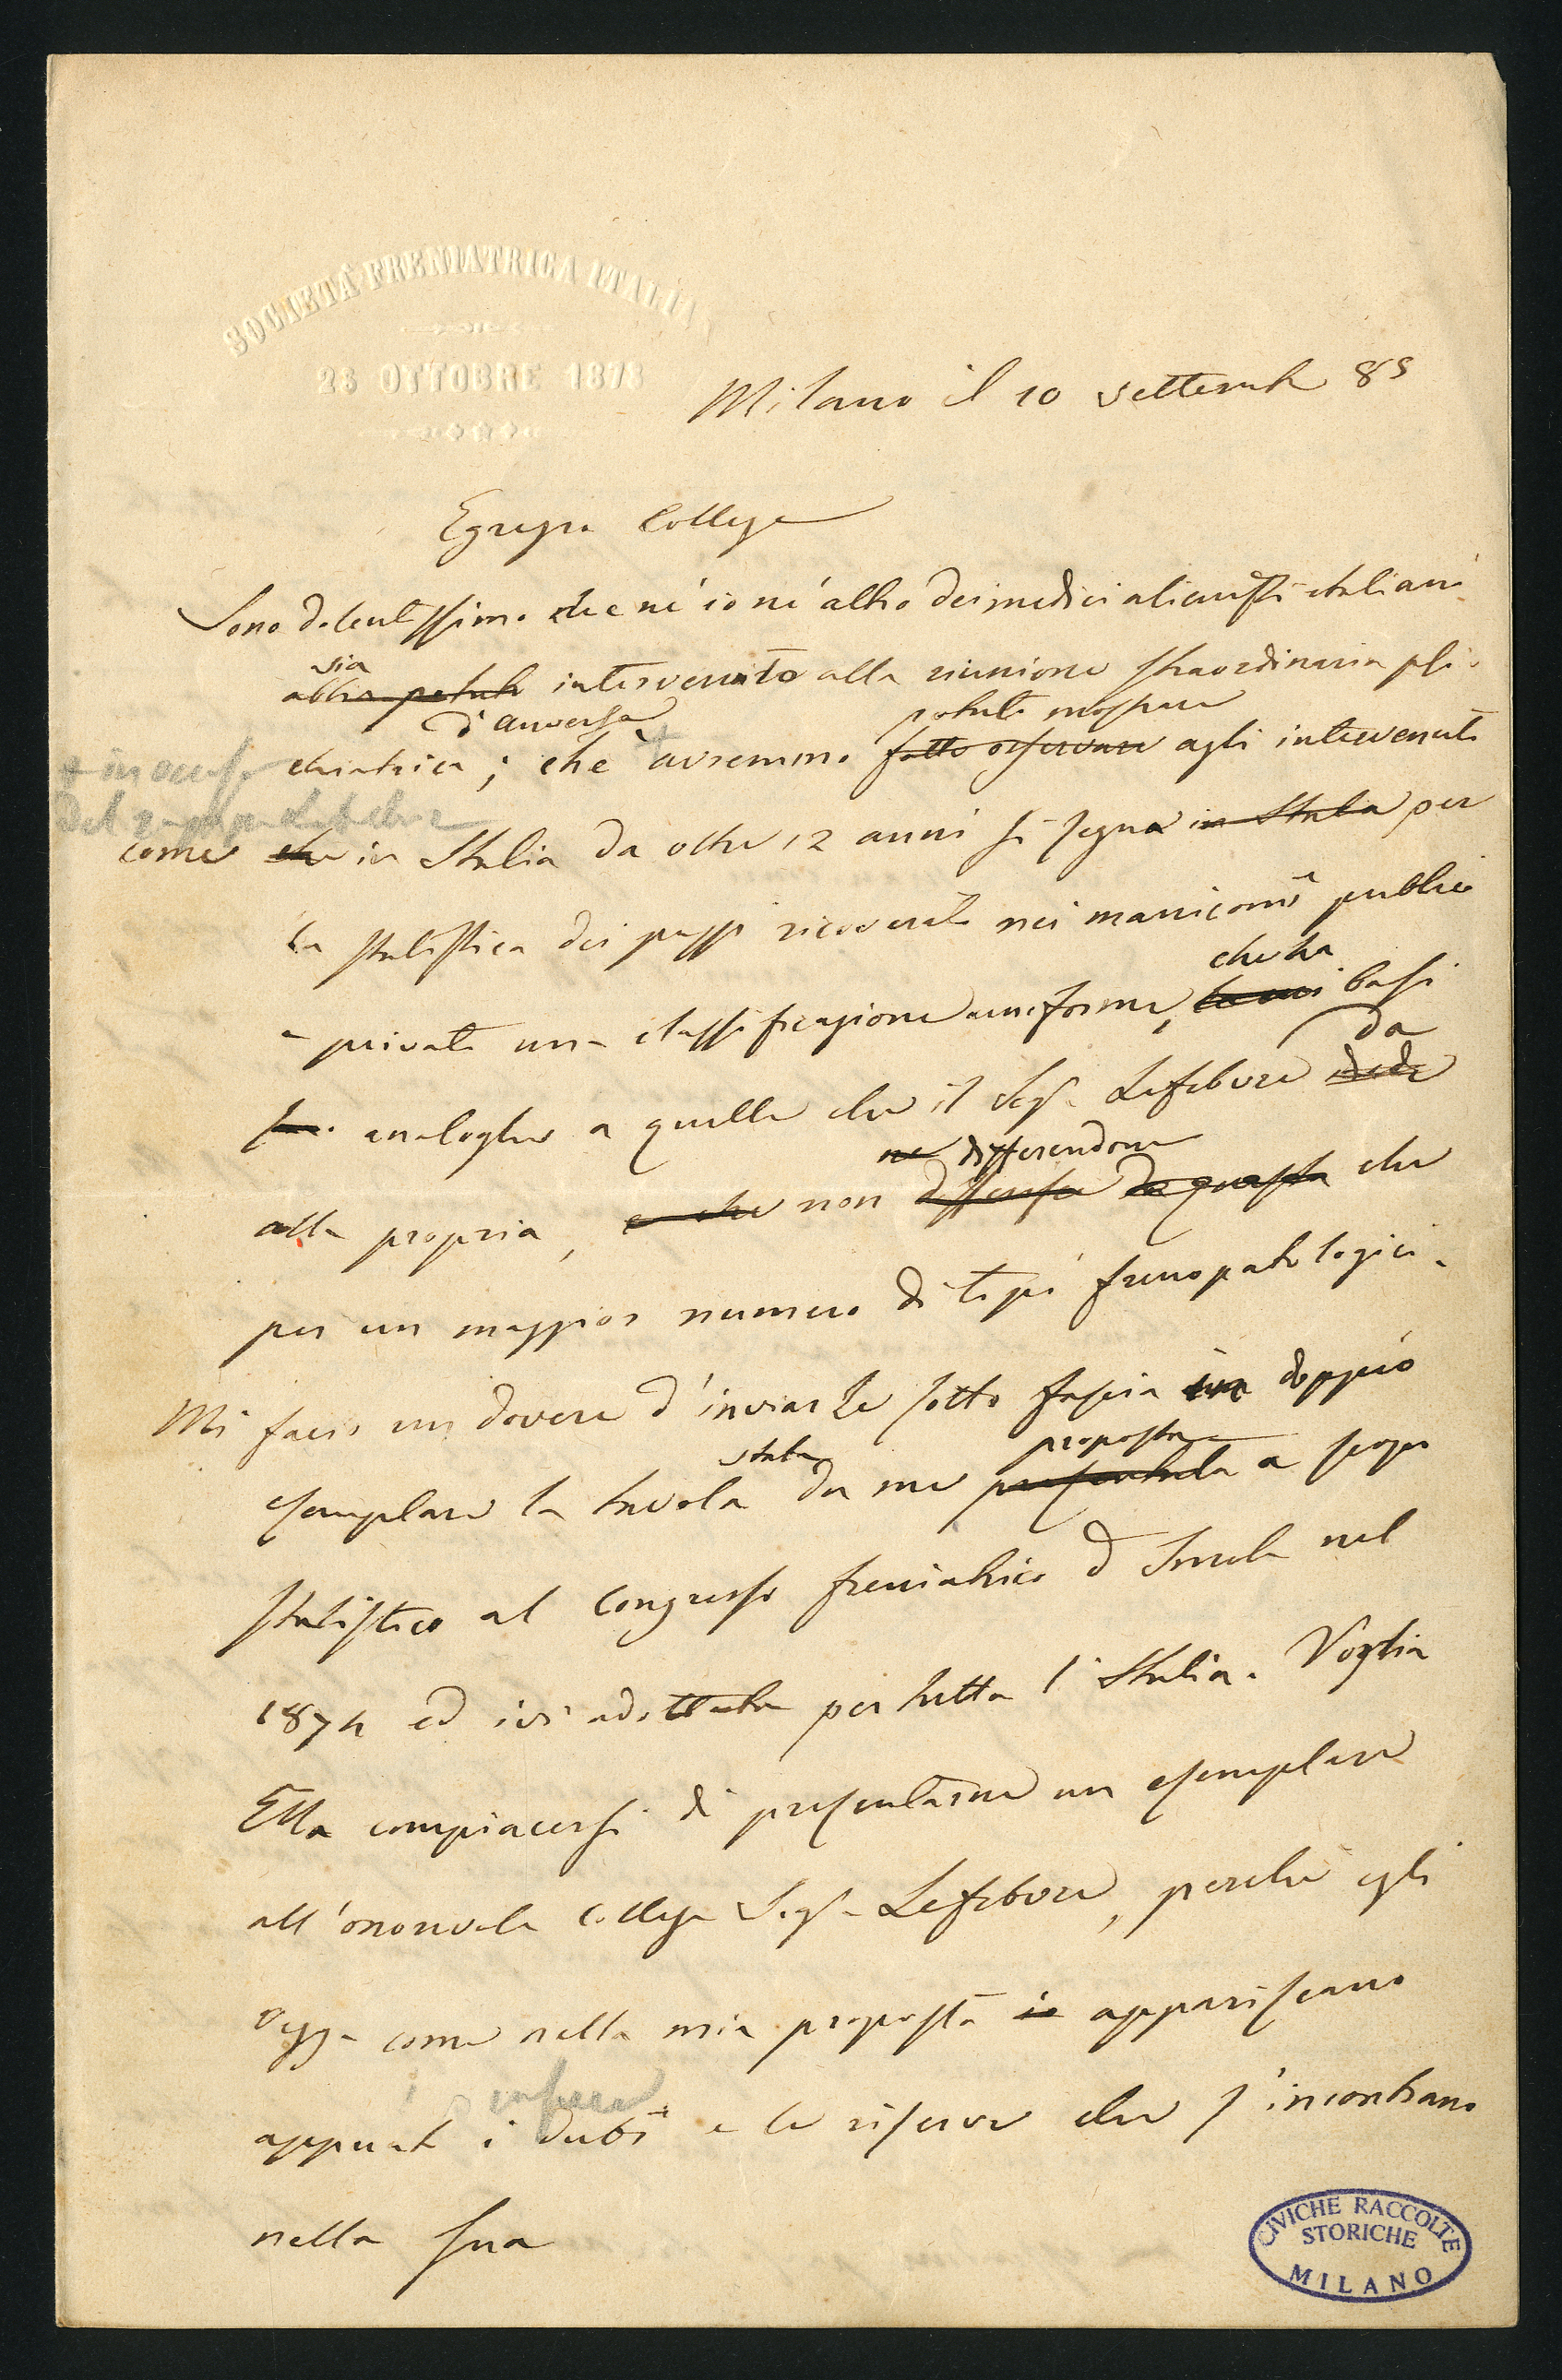 SOCIETÀ FRENIATRICA ITALIA
23 OTTOBRE 1873
Milano il 10 settembre 85
Egregio Collega
Sono dolentissimo che nè io nè altro dei medici alienisti italiani
sia
abbia potuto intervenuto alla riunione straordinaria psi-
d'Anversa
potuto mostrare
chiatrica; che avremmo fatto osservare agli intervenuti
+ in occasione
del
come che in Italia da oltre 12 anni si segua in Italia per
la statistica dei pazzi ricoverati nei manicomi pubblici
che ha
e privati una classificazione uniforme, basi
da
analoghe a quelle che il Sigr Lefebvre diede
ne differendone
alla propria, e che non differisce da questa che
per un maggior numero di tipi frenopatologici.
Mi faccio un dovere d'inviarLe sotto fascia in doppio
stata
proposta
esemplare la tavola da me presentata a scopo
statistico al Congresso freniatrico d'Imola nel
1874 ed ivi adottata per tutta l'Italia. Voglia
Ella compiacersi di presentarne un esemplare
all'onorevole collega Sigr Lefebvre, perchè egli
vegga come nella mia proposta io appariscano
appunto i dubbi e le riserve che s'incontrano
nella sua
CIVICHE RACCOLTE
STORICHE
MILANO